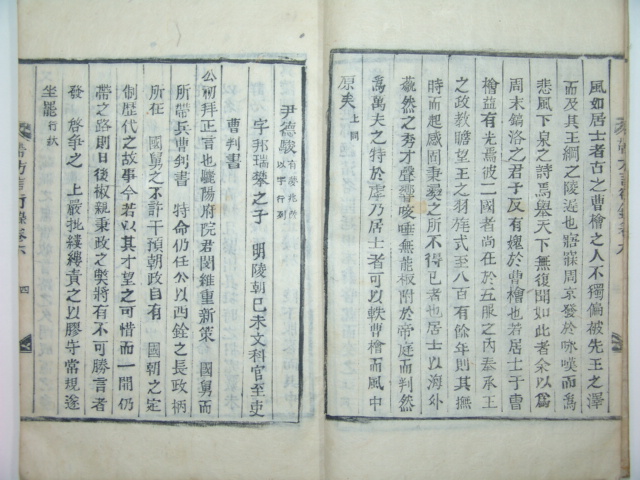 風如居士者古之曹檜之人不獨偏被先王之澤
而及其王綱之陵近也寤寐周京發於咏嘆而爲
悲風下泉之詩馬擧天下無復聞如此者余以爲
周末鎬洛之君子反有媿於曹檜也若居士于曹
檜益有光焉彼二國者尚在於五服之內奉承王
之政教瞻望王之羽旄式至八百有餘年則其撫
時而起感固秉彛之所不得已者也居士以海外
藐然之秀才聲響唆唾無能板附於帝庭而判然
爲萬夫之特於虖乃居士者可以軼曹檜而風中
原矣 上同
尹德駿 有夢兆所以字行列
字邦瑞攀之子 明陵朝己未文科官至吏
曹判書
公初拜正言也驪陽府院君閔維重新策 國舅而
所帶兵曹判書 特命仍任公以西銓之長政柄
所在 國舅之不許干預朝政自有 國朝之㝎
制歷代之故事今若以其才望之可惜而一開仍
帶之路則日後椒親秉政之獘將有不可勝言者
發 啓爭之 上嚴批縷縷責之以膠守常規遂
坐罷 行狀
四